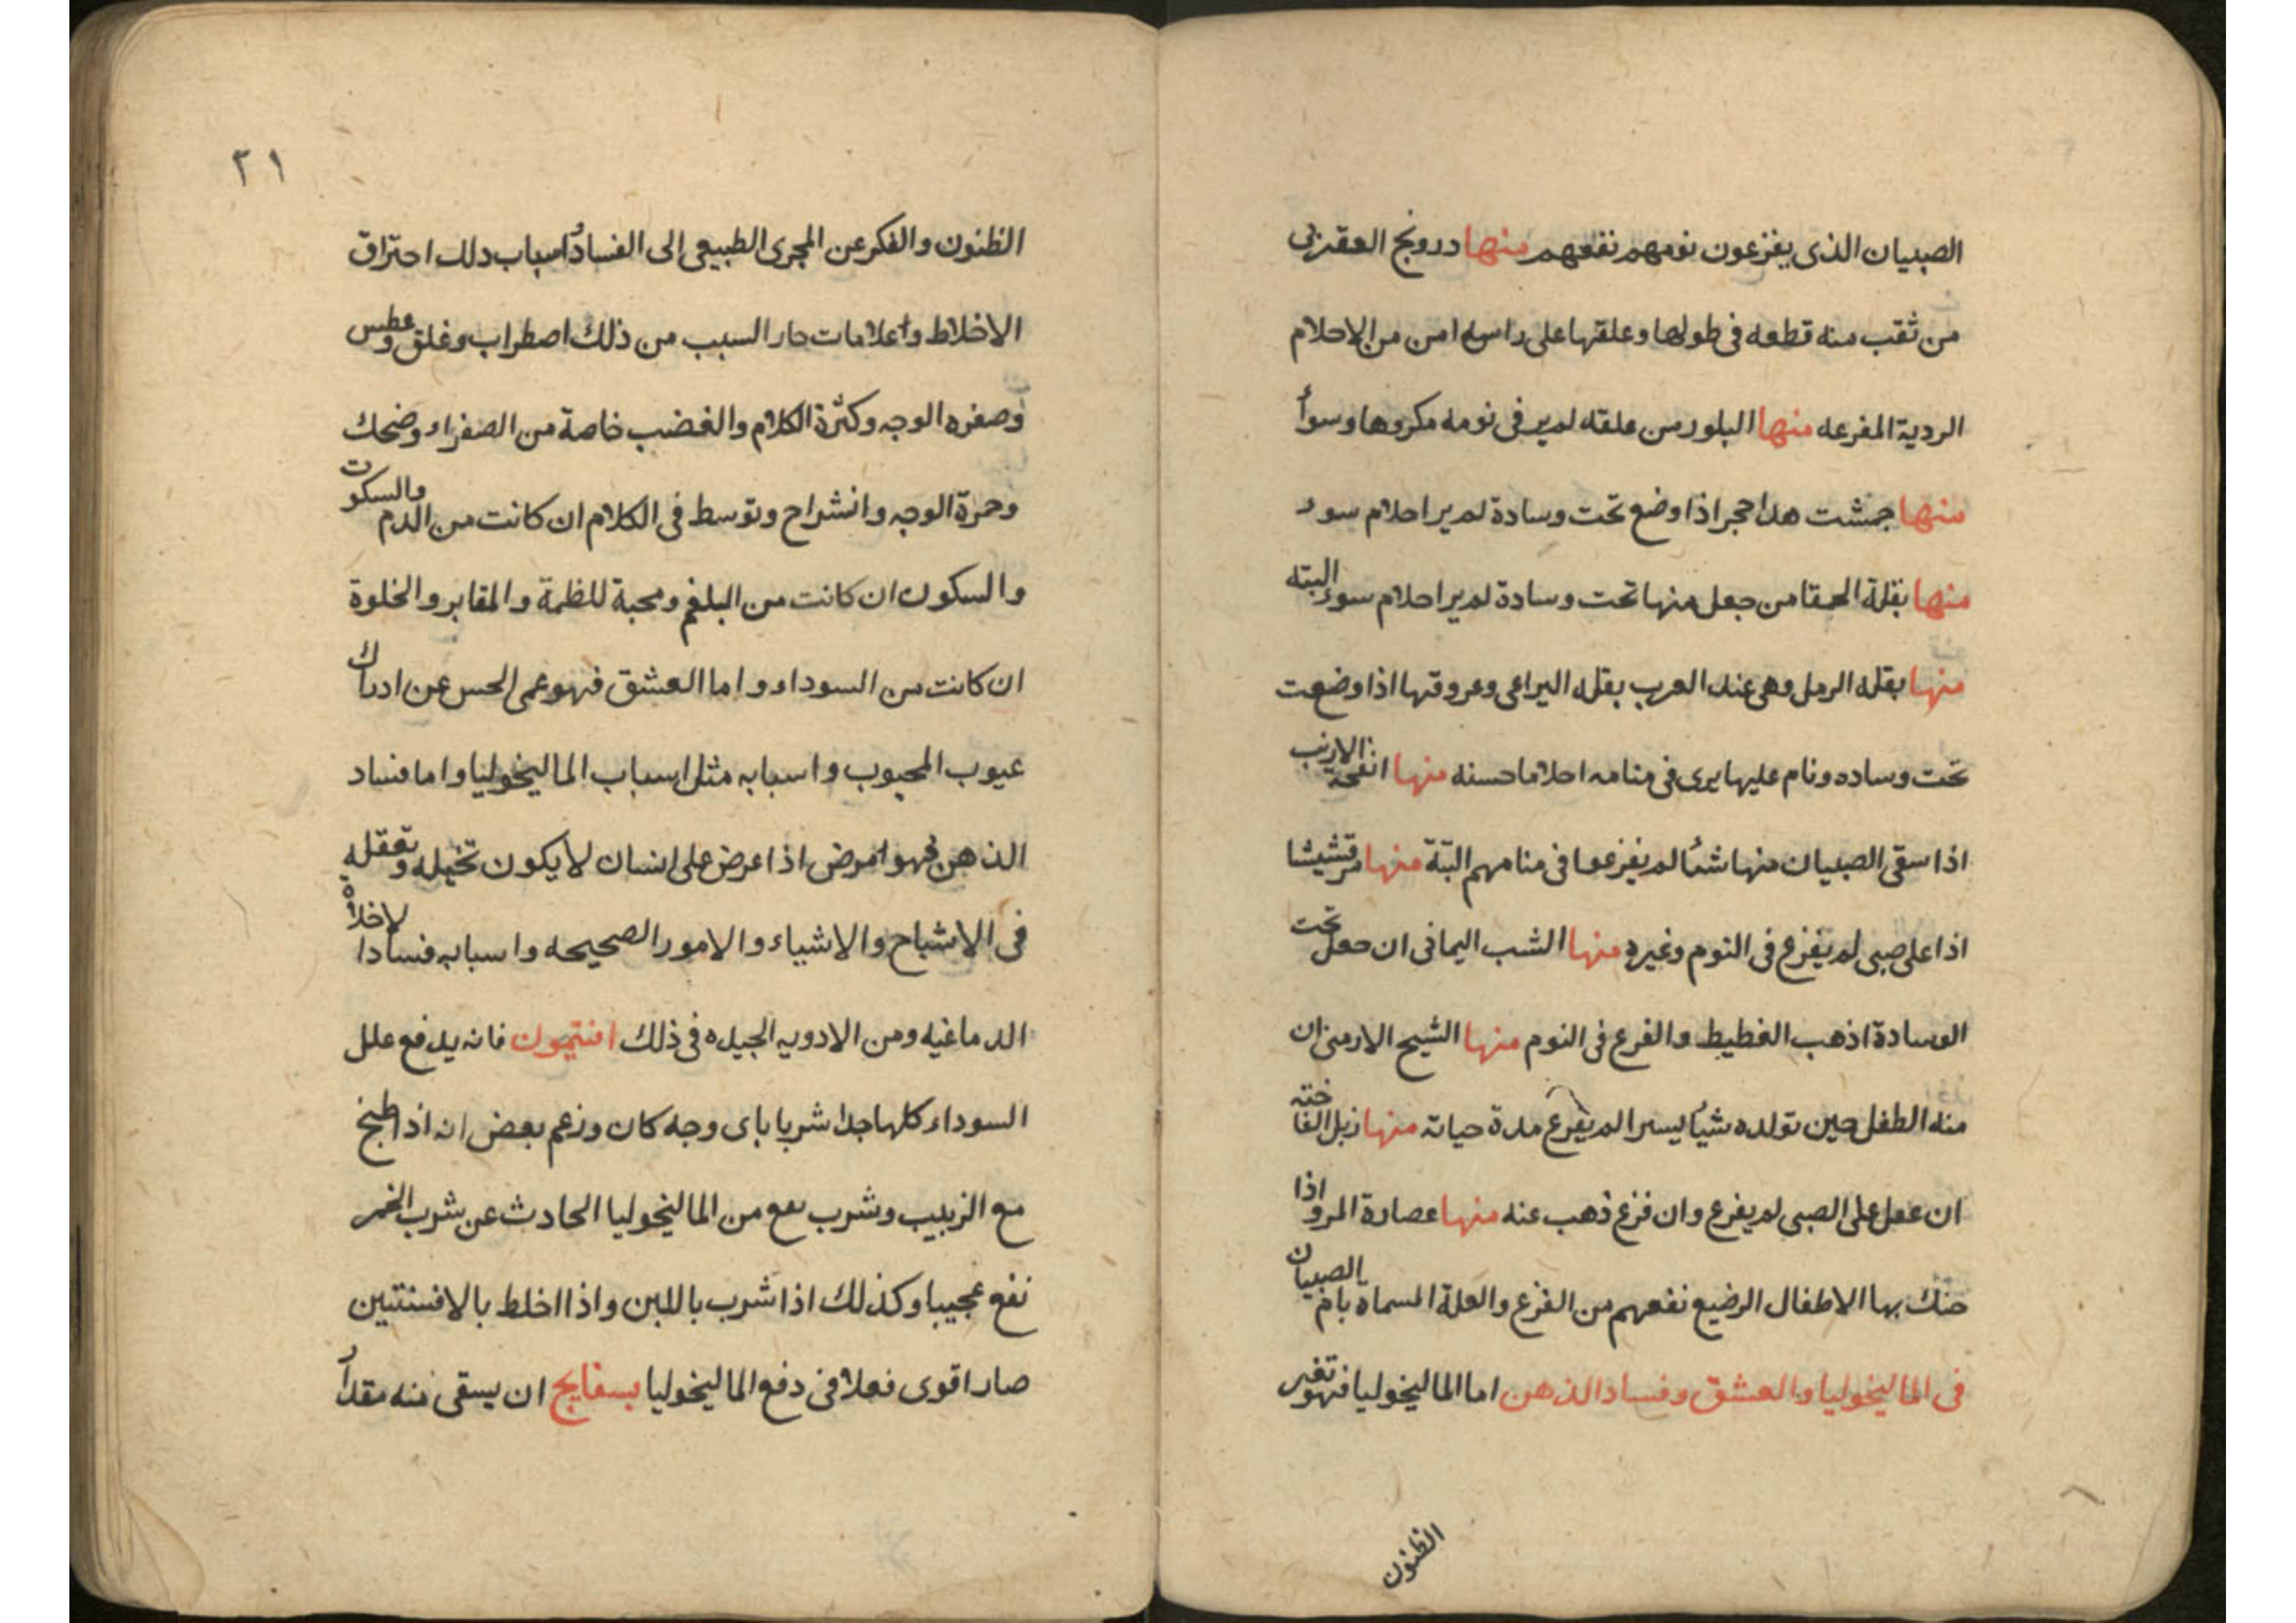 الصبيان الذى يفزعون نومهم نفعهم منها درونج العقربى
من ثقب منه قطعه فى طولها وعلقها على راسه امن من الاحلام
الردية المفزعه منها البلور من علقه لم ير فى نومه مكروها وسوأ
منها جمشت هذا حجر اذا وضع تحت وسادة لم ير احلام سوء
منها بقلة الحمقا من جعل منها تحت وسادة لم ير احلام سوء البته
منها بقله الرمل وهى عند العرب بقله اليراعى وعروقها اذا وضعت
تحت وساده ونام عليها يرى فى منامه احلاما حسنه منها انفحة الارنب
اذا سقى الصبيان منها شئا لم يفزعوا فى منامهم البتة منها مرقشيشا
اذا على صبى لم يفزع فى النوم وغيره منها الشب اليمانى ان جعل تحت
الوسادة اذهب الغطيط والفزع فى النوم منها الشيح الارمنى ان
منه الطفل حين تولده شيأ يسيرا لم يفزع مدة حياته منها زبل الفاخته
ان عمل على الصبى لم يفزع وان فزع ذهب عنه منها عصارة المرو اذا
حنك بها الاطفال الرضيع نفعهم من الفزع والعلة المسماة بام الصبيان
فى الماليخوليا والعشق وفساد الذهن اما الماليخوليا فهو تغير
الظنون
٢١
الظنون والفكر عن المجرى الطبيعى الى الفساد واسباب ذلك احتراق
الاخلاط واعلامات حار السبب من ذلك اضطراب وغلق وعطس
وصفره الوجه وكثرة الكلام والغضب خاصة من الصفراء وضحك
وحمرة الوجه وانشراح وتوسط فى الكلام ان كانت من الدم والسكوت
والسكون ان كانت من البلغم ومحبة للظلمة والمقابر والخلوة
ان كانت من السوداء واما العشق فهو عمى الحس عن ادراك
عيوب المحبوب واسبابه مثل اسباب الماليخوليا واما فساد
الذهن فهو امرض اذا عرض على انسان لا يكون تخيله وتعقله
فى الاشباح والاشياء والامور الصحيحه واسبابه فسادا لاخلاة
الدماغيه ومن الادويه الجيده فى ذلك افتيمون فانه يدفع علل
السوداء كلها جدا شربا باى وجه كان وزعم بعض انه اذا طبخ
مع الزبيب وشرب نفع من الماليخوليا الحادث عن شرب الخمر
نفع عجيبا وكذلك اذا شرب باللبن واذا اخلط بالافسنتين
صار اقوى فعلا فى دفع الماليخوليا بسفايج ان يسقى منه مقدار